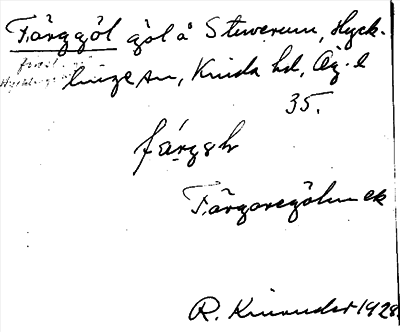 Färggöl göl å Stuverum, Hyck-
linge sn, Kinda hd, Ög. l
35.
Färgaregölen ek
R. Kinander 1928